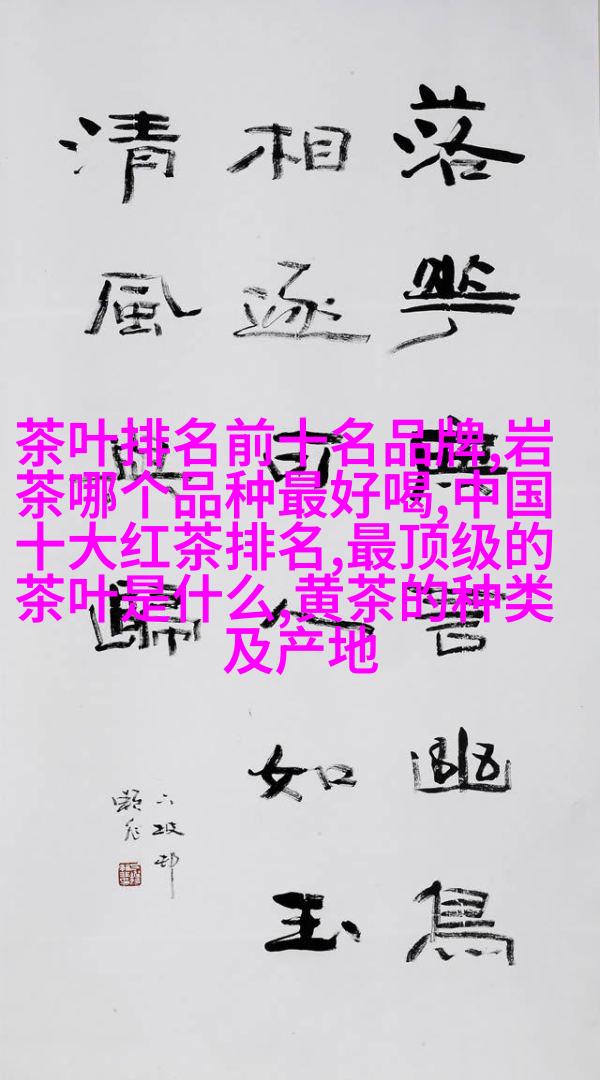 落華無言幽鳥
相逐可人如玉
清風與歸
茶叶排名前十名品牌,岩
茶哪个品种最好喝,中国
十大红茶排名,最顶级的
茶叶是什么,黄茶的种类
及产地